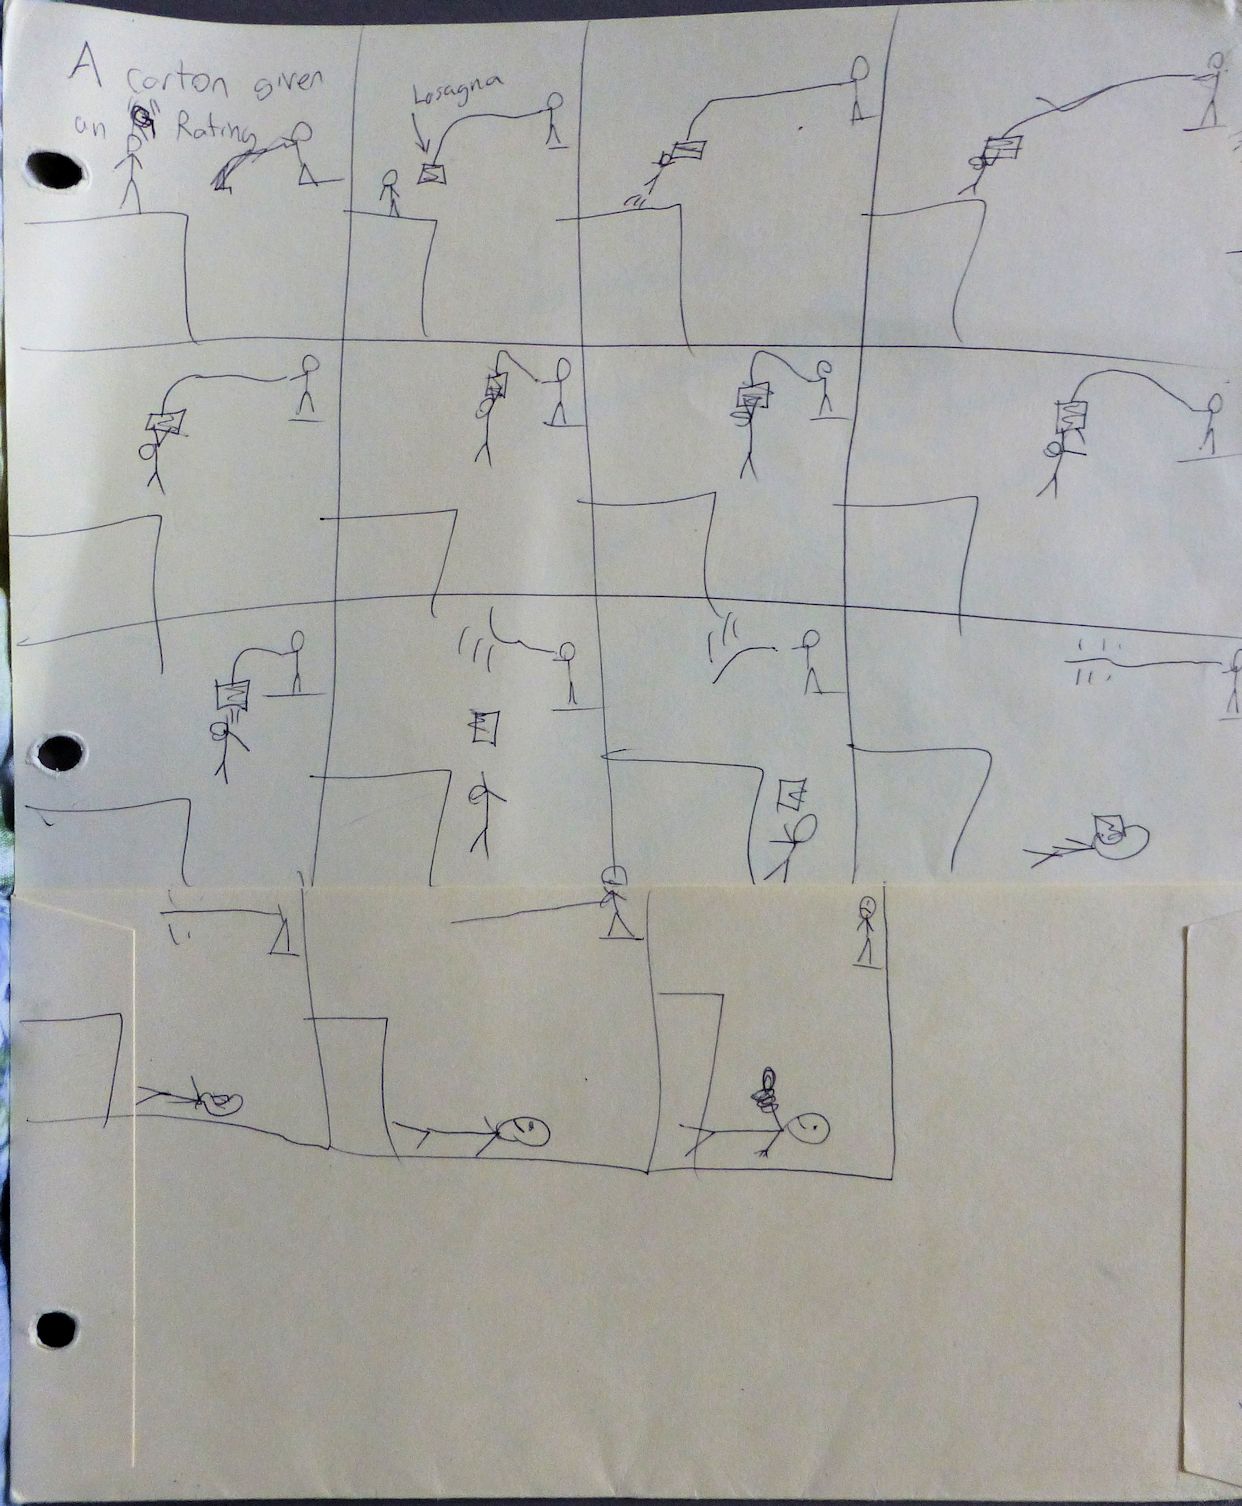 A carton given
an Rating
Lasagna